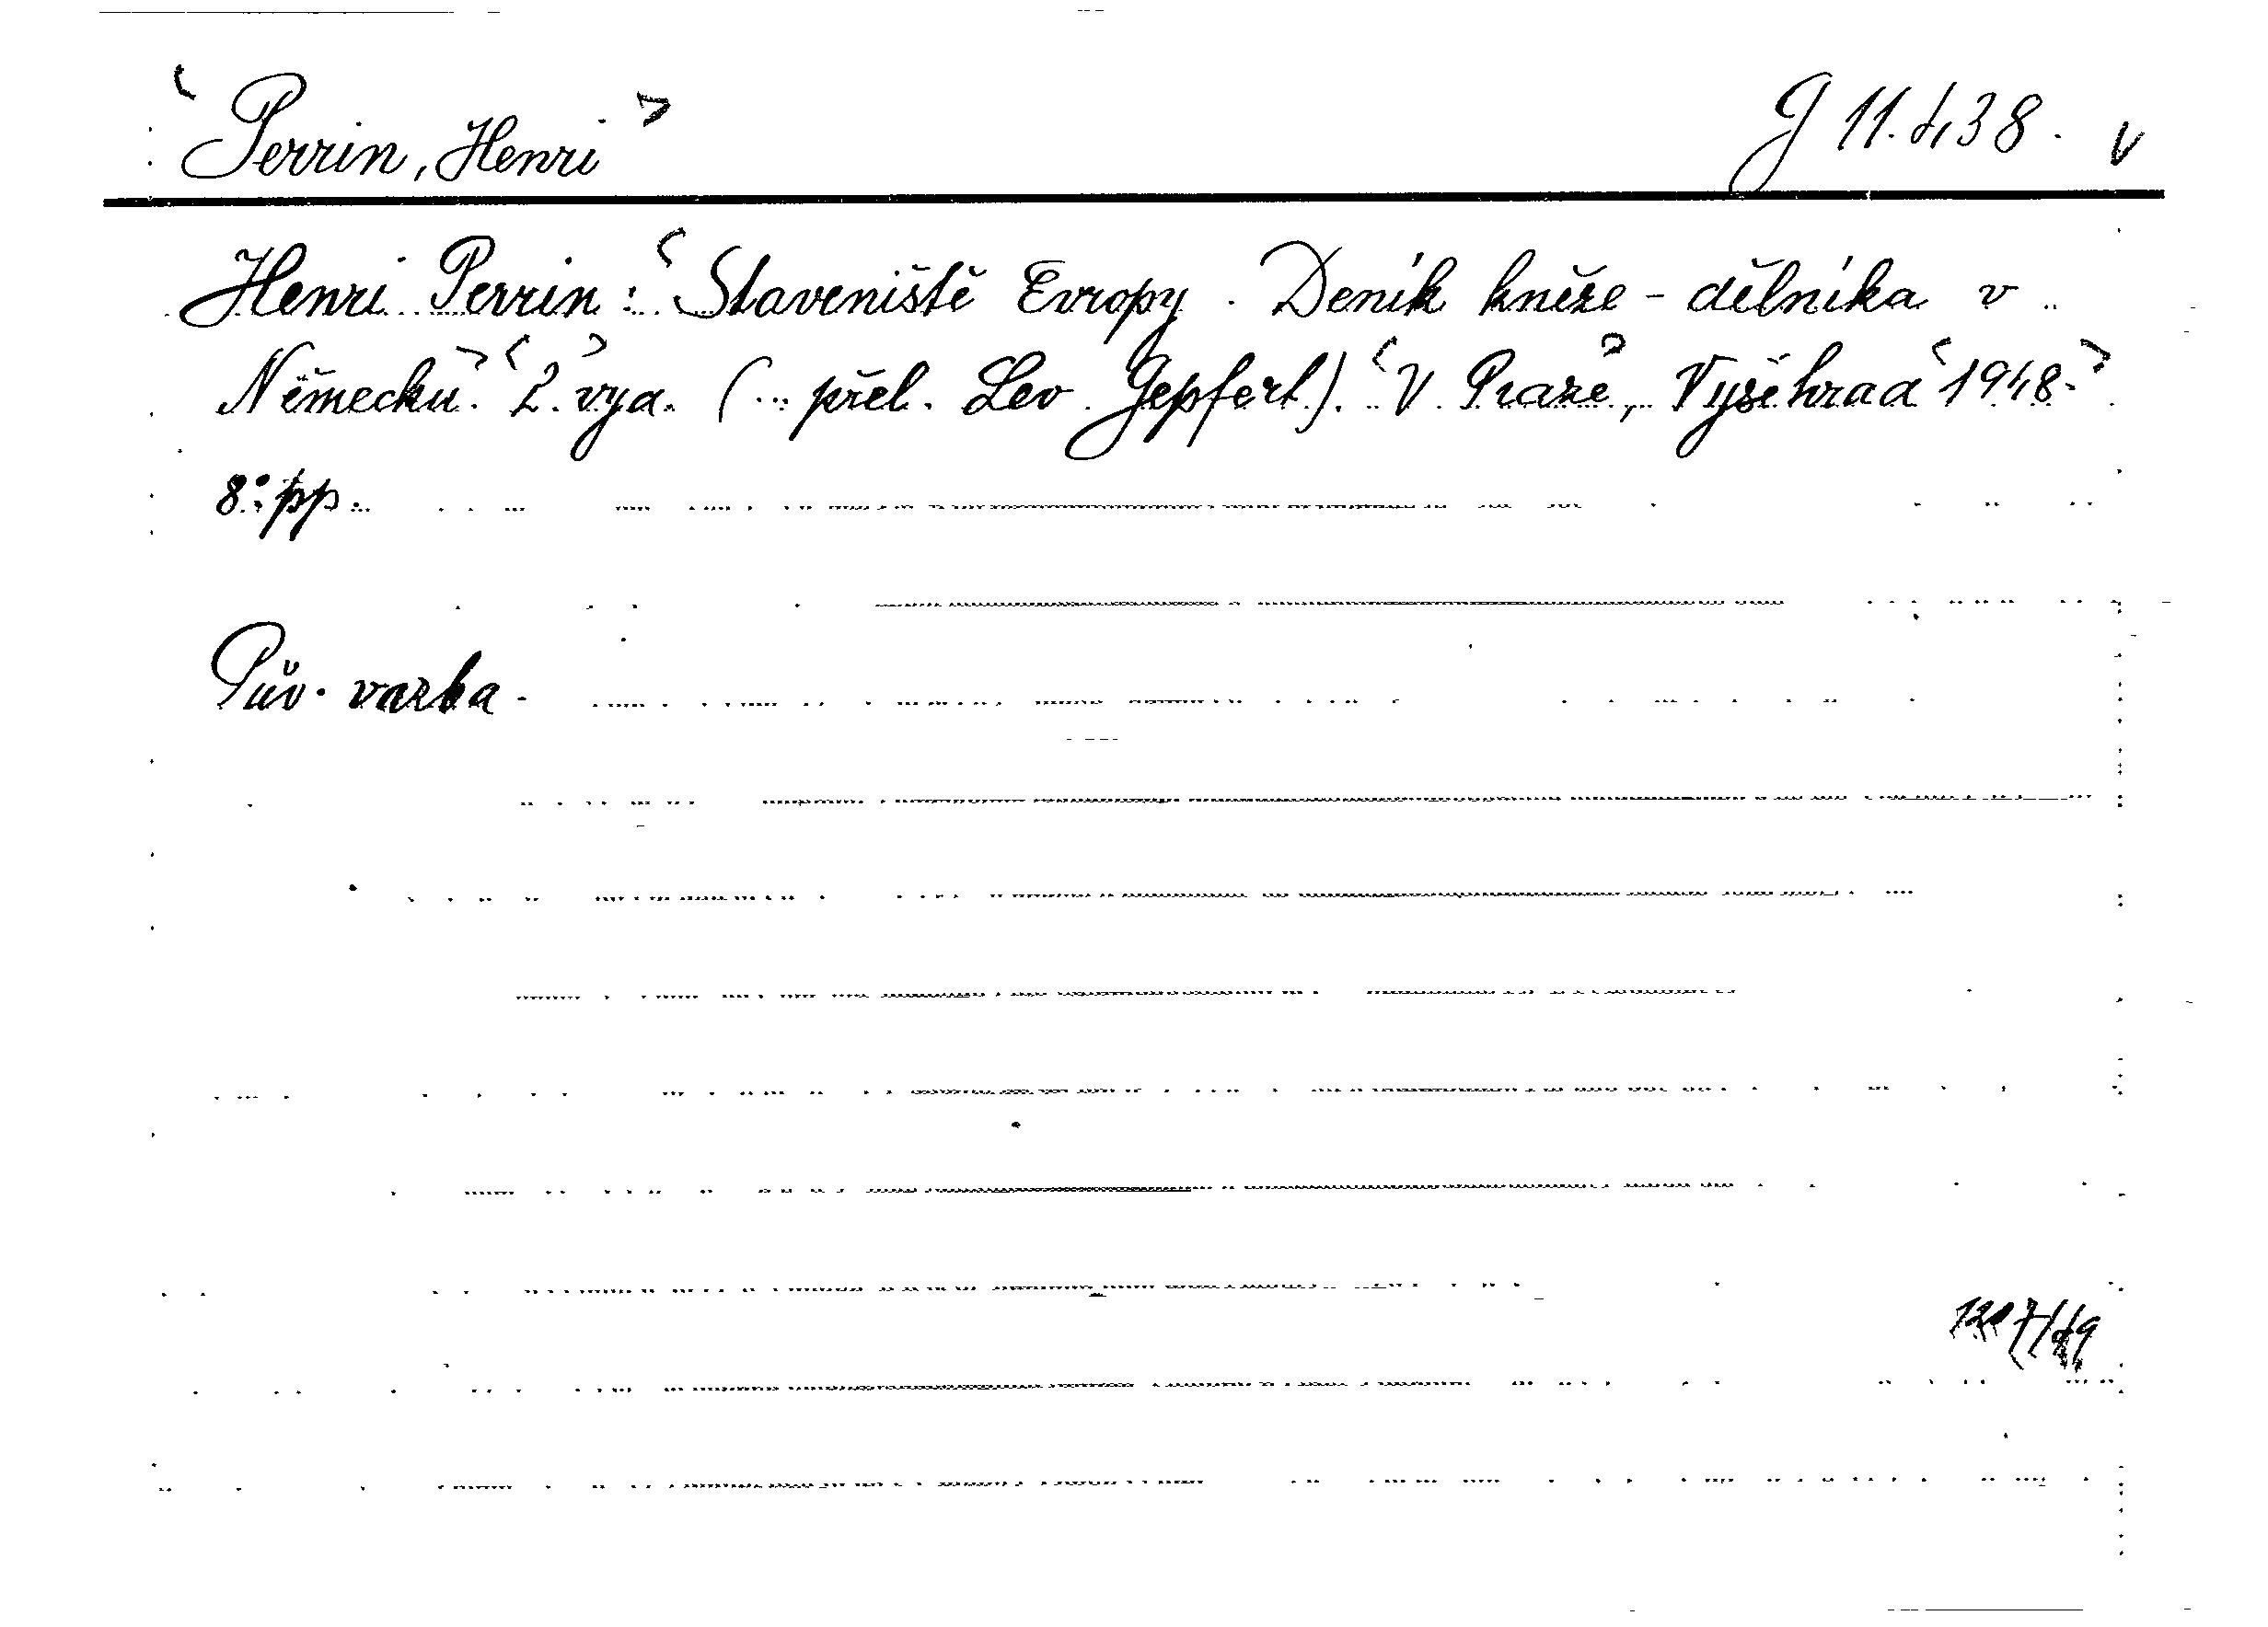 Perrin, Henri G 11.438. v
Henri Perrin: Staveniště Evropy. Deník kněze-dělníka v
Německu. 2. vyd. (.. přel. Lev Gepfert). V Praze, Vyšehrad 1948.
8° pp.
Pův. vazba.
1207/49